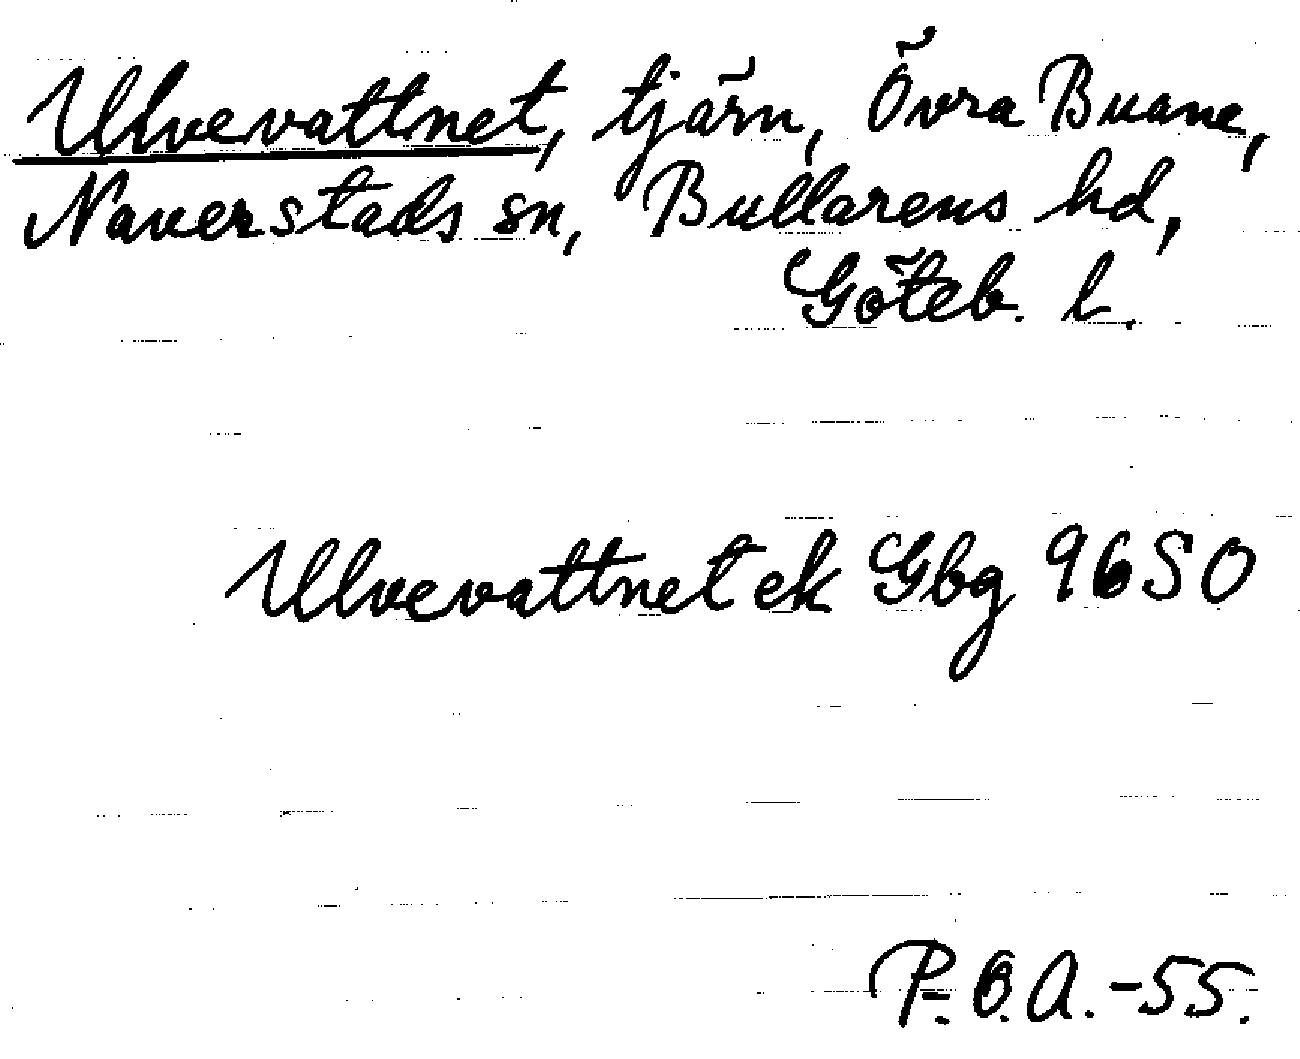 Ulvevattnet, tjärn, Övra Buane,
Naverstads sn, Bullarens hd,
Göteb. l.
Ulvevattnet ek Gbg 9650
P.O.A.-55.